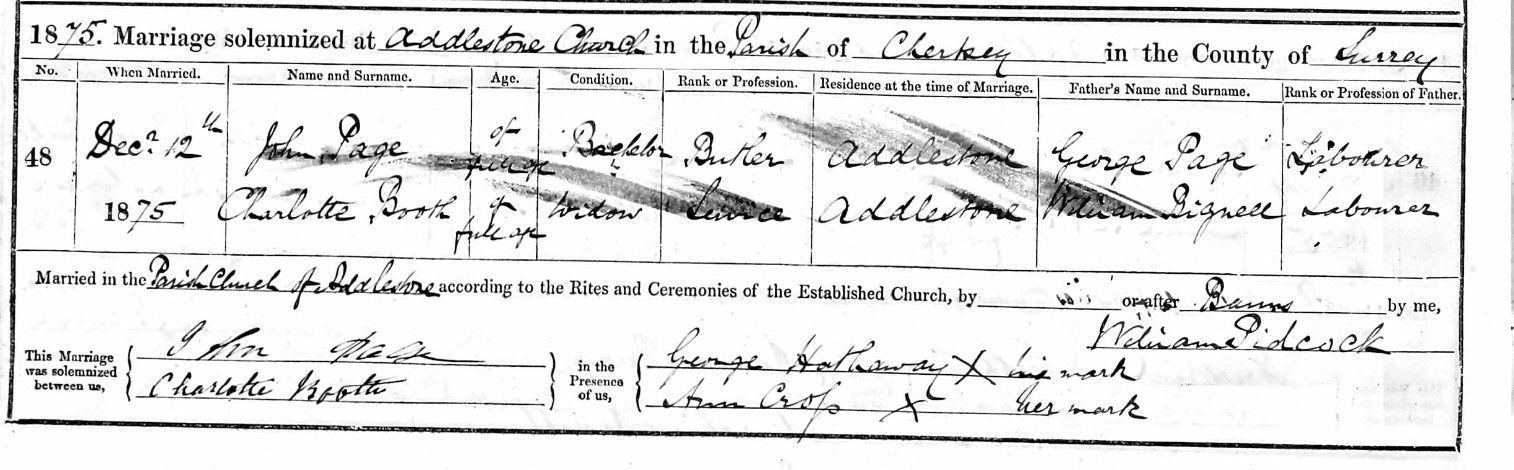 1875. Marriage solemnized at Addlestone Church in the Parish of Chertsey in the County of Surrey
No. When Married. Name and Surname. Age. Condition. Rank or Profession. Residence at the time of Marriage. Father's Name and Surname. Rank or Profession of Father.
48 Decr 12th John Page of full age Bachelor Butler Addlestone George Page Labourer
1875 Charlotte Booth of full age Widow Service Addlestone William Bignell Labourer
Married in the Parish Church of Addlestone according to the Rites and Ceremonies of the Established Church, by or after Banns by me,
William Pidcock
This Marriage was solemnized between us, John Page in the Presence of us, George Hathaway X his mark
Charlotte Booth Ann Cross X her mark